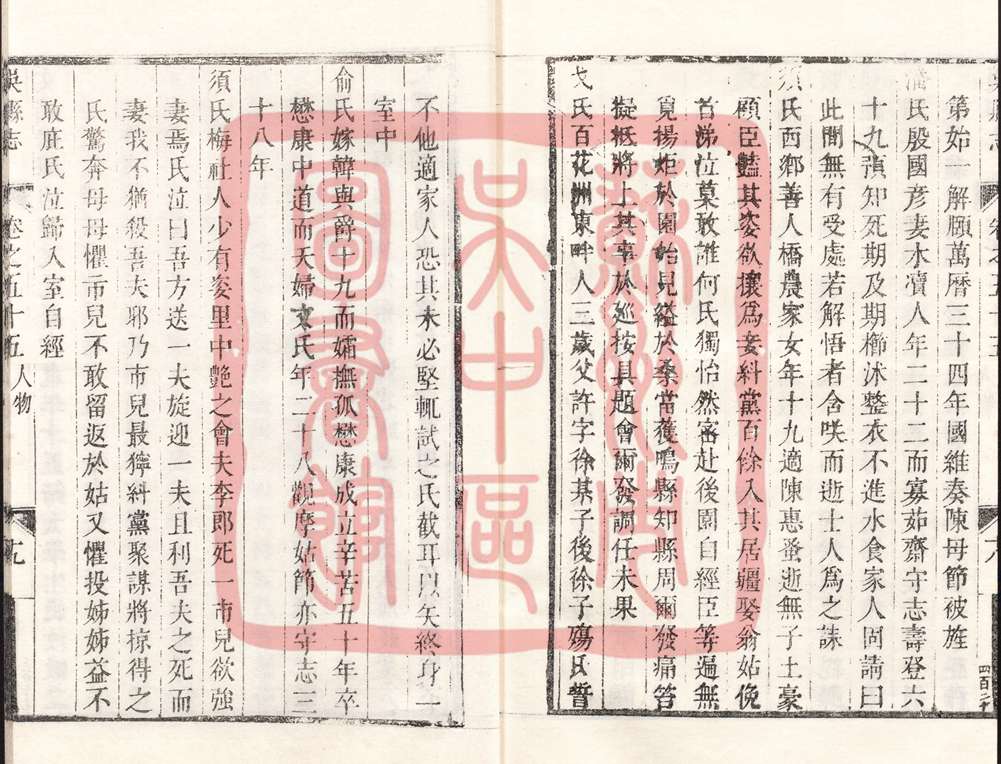 第始一解願萬曆三十四年國維奏陳母節被旌
潘氏殷國彥妻木瀆人年二十二而寡茹齋守志壽登六
十九預知死期及期櫛沐整衣不進水食家人固請曰
此間無有受處若解悟者含咲而逝士人為之誄
須氏西鄉善人橋農家女年十九適陳惠蚤逝無子土豪
顧臣豔其姿欲攘為妾糾黨百餘入其居彊娶翁姑俛
首涕泣莫敢誰何氏獨怡然密赴後園自經臣等遍無
覓揚炬於園始見縊於桑當獲鳴縣知縣周爾發痛笞
擬抵將上其事於巡按具題會爾發調任未果
戈氏百花洲東畔人三歲父許字徐某子後徐子殤氏誓
四百二十
吳縣志
卷之五十五
人物
九
不他適家人恐其未必堅輒試之氏截耳以矢終身一
室中
俞氏嫁韓與爵十九而孀撫孤懋康成立辛苦五十年卒
懋康中道而夭婦文氏年二十八觀摩姑節亦守志三
十八年
須氏梅社人少有姿里中艷之會夫李郎死一市兒欲強
妻焉氏泣曰吾方送一夫旋迎一夫且利吾夫之死而
妻我不猶殺吾夫耶乃市兒最獰糾黨聚謀將掠得之
氏驚奔母母懼市兒不敢留返於姑又懼投姊姊益不
敢庇氏泣歸入室自經
蘇州市
吳中區
圖書館